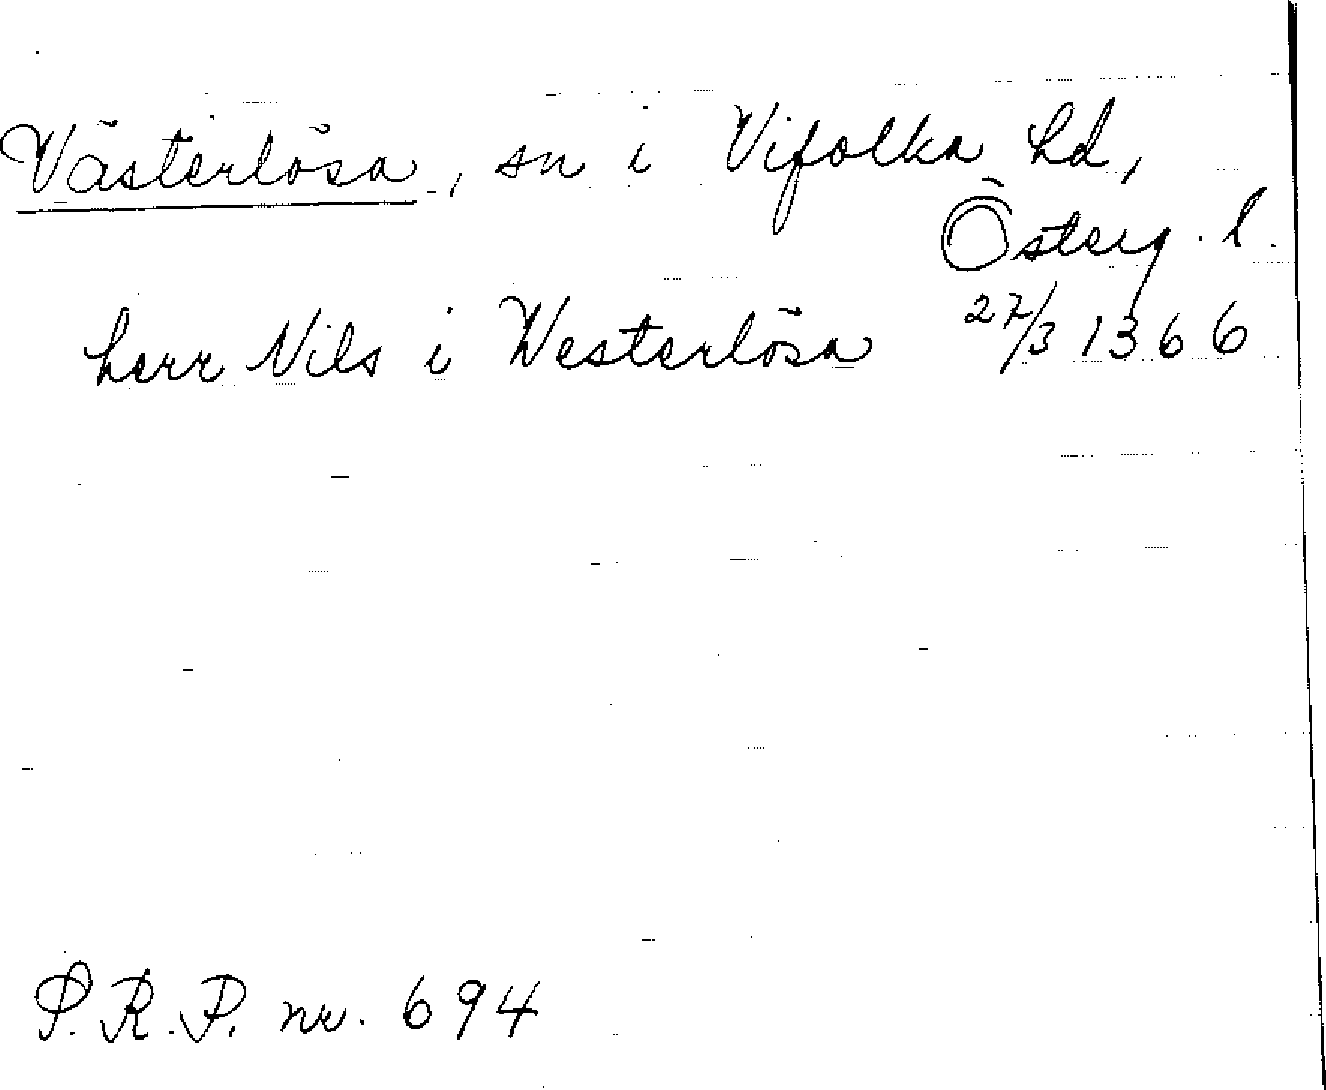 Västerlösa, sn i Vifolka hd,
Österg. l.
herr Nils i Westerlösa 27/3 1366
S.R.P. nr. 694